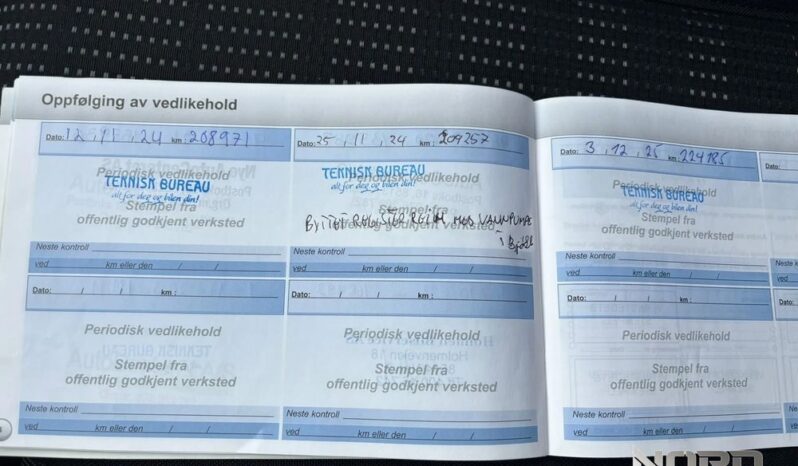 Oppfølging av vedlikehold
Dato: 12, 11, 24 km: 208971
Periodisk vedlikehold
TEKNISK BUREAU
alt for deg og bilen din!
Stempel fra
offentlig godkjent verksted
Neste kontroll
ved km eller den / /
Dato: 25, 11, 24 km: 209257
TEKNISK BUREAU
Periodisk vedlikehold
alt for deg og bilen din!
Stempel fra
BYTTET REGISTER REIM MED VANNPUMPE
offentlig godkjent verksted
Neste kontroll
ved km eller den / /
Dato: 3, 12, 25 km: 224185
Periodisk vedlikehold
TEKNISK BUREAU
alt for deg og bilen din!
Stempel fra
offentlig godkjent verksted
Neste kontroll
ved km eller den / /
Dato: / / km:
Periodisk vedlikehold
Stempel fra
offentlig godkjent verksted
Neste kontroll
ved km eller den / /
Dato: / / km:
Periodisk vedlikehold
Stempel fra
offentlig godkjent verksted
Neste kontroll
ved km eller den / /
Dato: / / km:
Periodisk vedlikehold
Stempel fra
offentlig godkjent verksted
Neste kontroll
ved km eller den / /
Dato:
Neste
ved
Dato:
Neste
ved
NORD